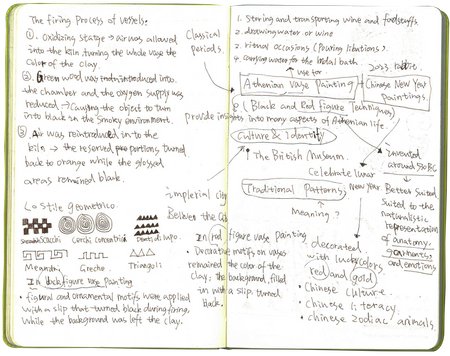 The firing process of vessels.
①. Oxidizing stage → air was allowed
into the kiln, turning the whole vase the
color of the clay.
②. Green wood was introduced into
the chamber and the oxygen supply was
reduced → Causing the object to turn
into black in the smoky environment.
③. Air was reintroduced into the
kiln → the reserved portions turned
back to orange while the glossed
areas remained black.
Lo stile geometrico.
Scacchi Cerchi concentrici Denti di lupo.
Meandri Greche. Triangoli
In black figure vase Painting
• figural and ornamental motifs were applied
with a slip that turned black during firing,
while the background was left the clay.
Classical
periods.
imperial city
In red figure vase painting
• Decorative motifs on vases
remained the color of
the clay, the background, filled
in with a slip, turned
black.
1. Storing and transporting wine and foodstuffs.
2. drawing water or wine
3. ritual occasions (Pouring libations).
4. carrying water for the bridal bath.
use for
2023 rabbit
Athenian vase Painting
Chinese New Year
Paintings.
(Black and Red figure Techniques)
Provide insights into many aspects of Athenian life.
Culture & identity
The British Museum.
invented
around 530 BC
Celebrate lunar
New year
Traditional Patterns
Meaning?
Better suited
suited to the
naturalistic
representation
of anatomy,
and emotions
decorated
with lucky colors,
red and gold
• Chinese culture.
• Chinese literacy.
• Chinese zodiac animals.